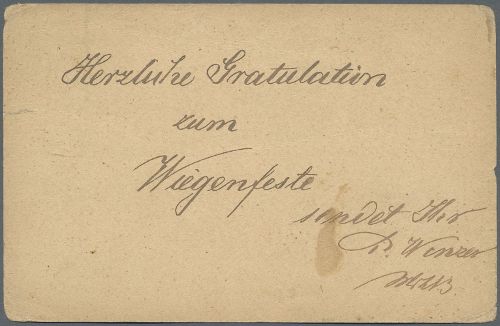 Herzliche Gratulation
zum
Wiegenfeste
sendet Ihr